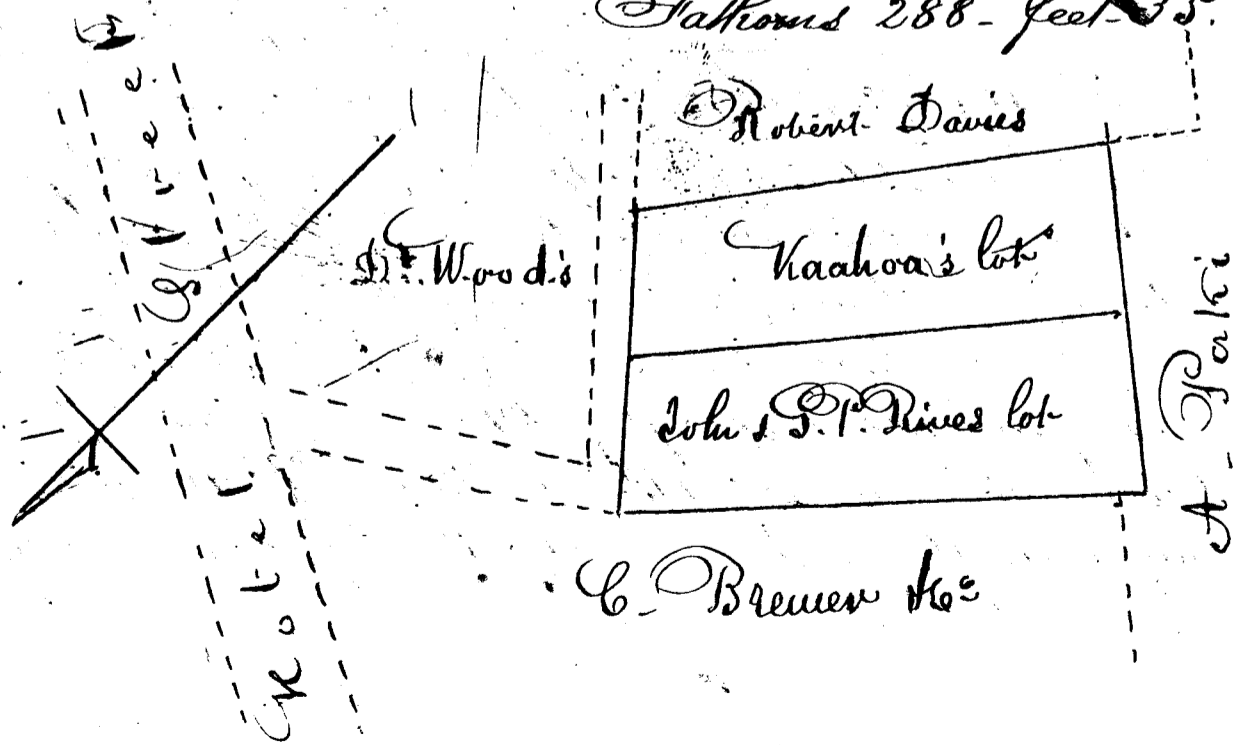 Fathoms 288- feet- 35.
Robert Davies
Dr. Wood's
Kaahoa's lot
John & G.P. Rives lot
C. Brewer &Co
A. Paki
Hotel Street